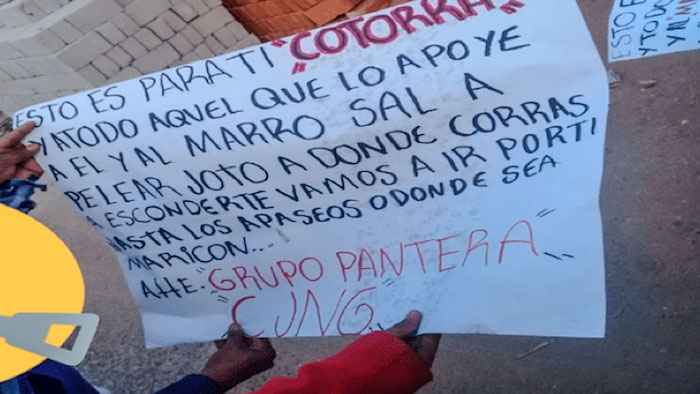 ESTO ES PARA TI "COTORRA"
Y ATODO AQUEL QUE LO APOYE
A EL Y AL MARRO SAL A
PELEAR JOTO A DONDE CORRAS
A ESCONDERTE VAMOS A IR PORTI
HASTA LOS APASEOS O DONDE SEA
MARICON...
ATTE. "GRUPO PANTERA"
"CJNG"
ESTO
Y TODO